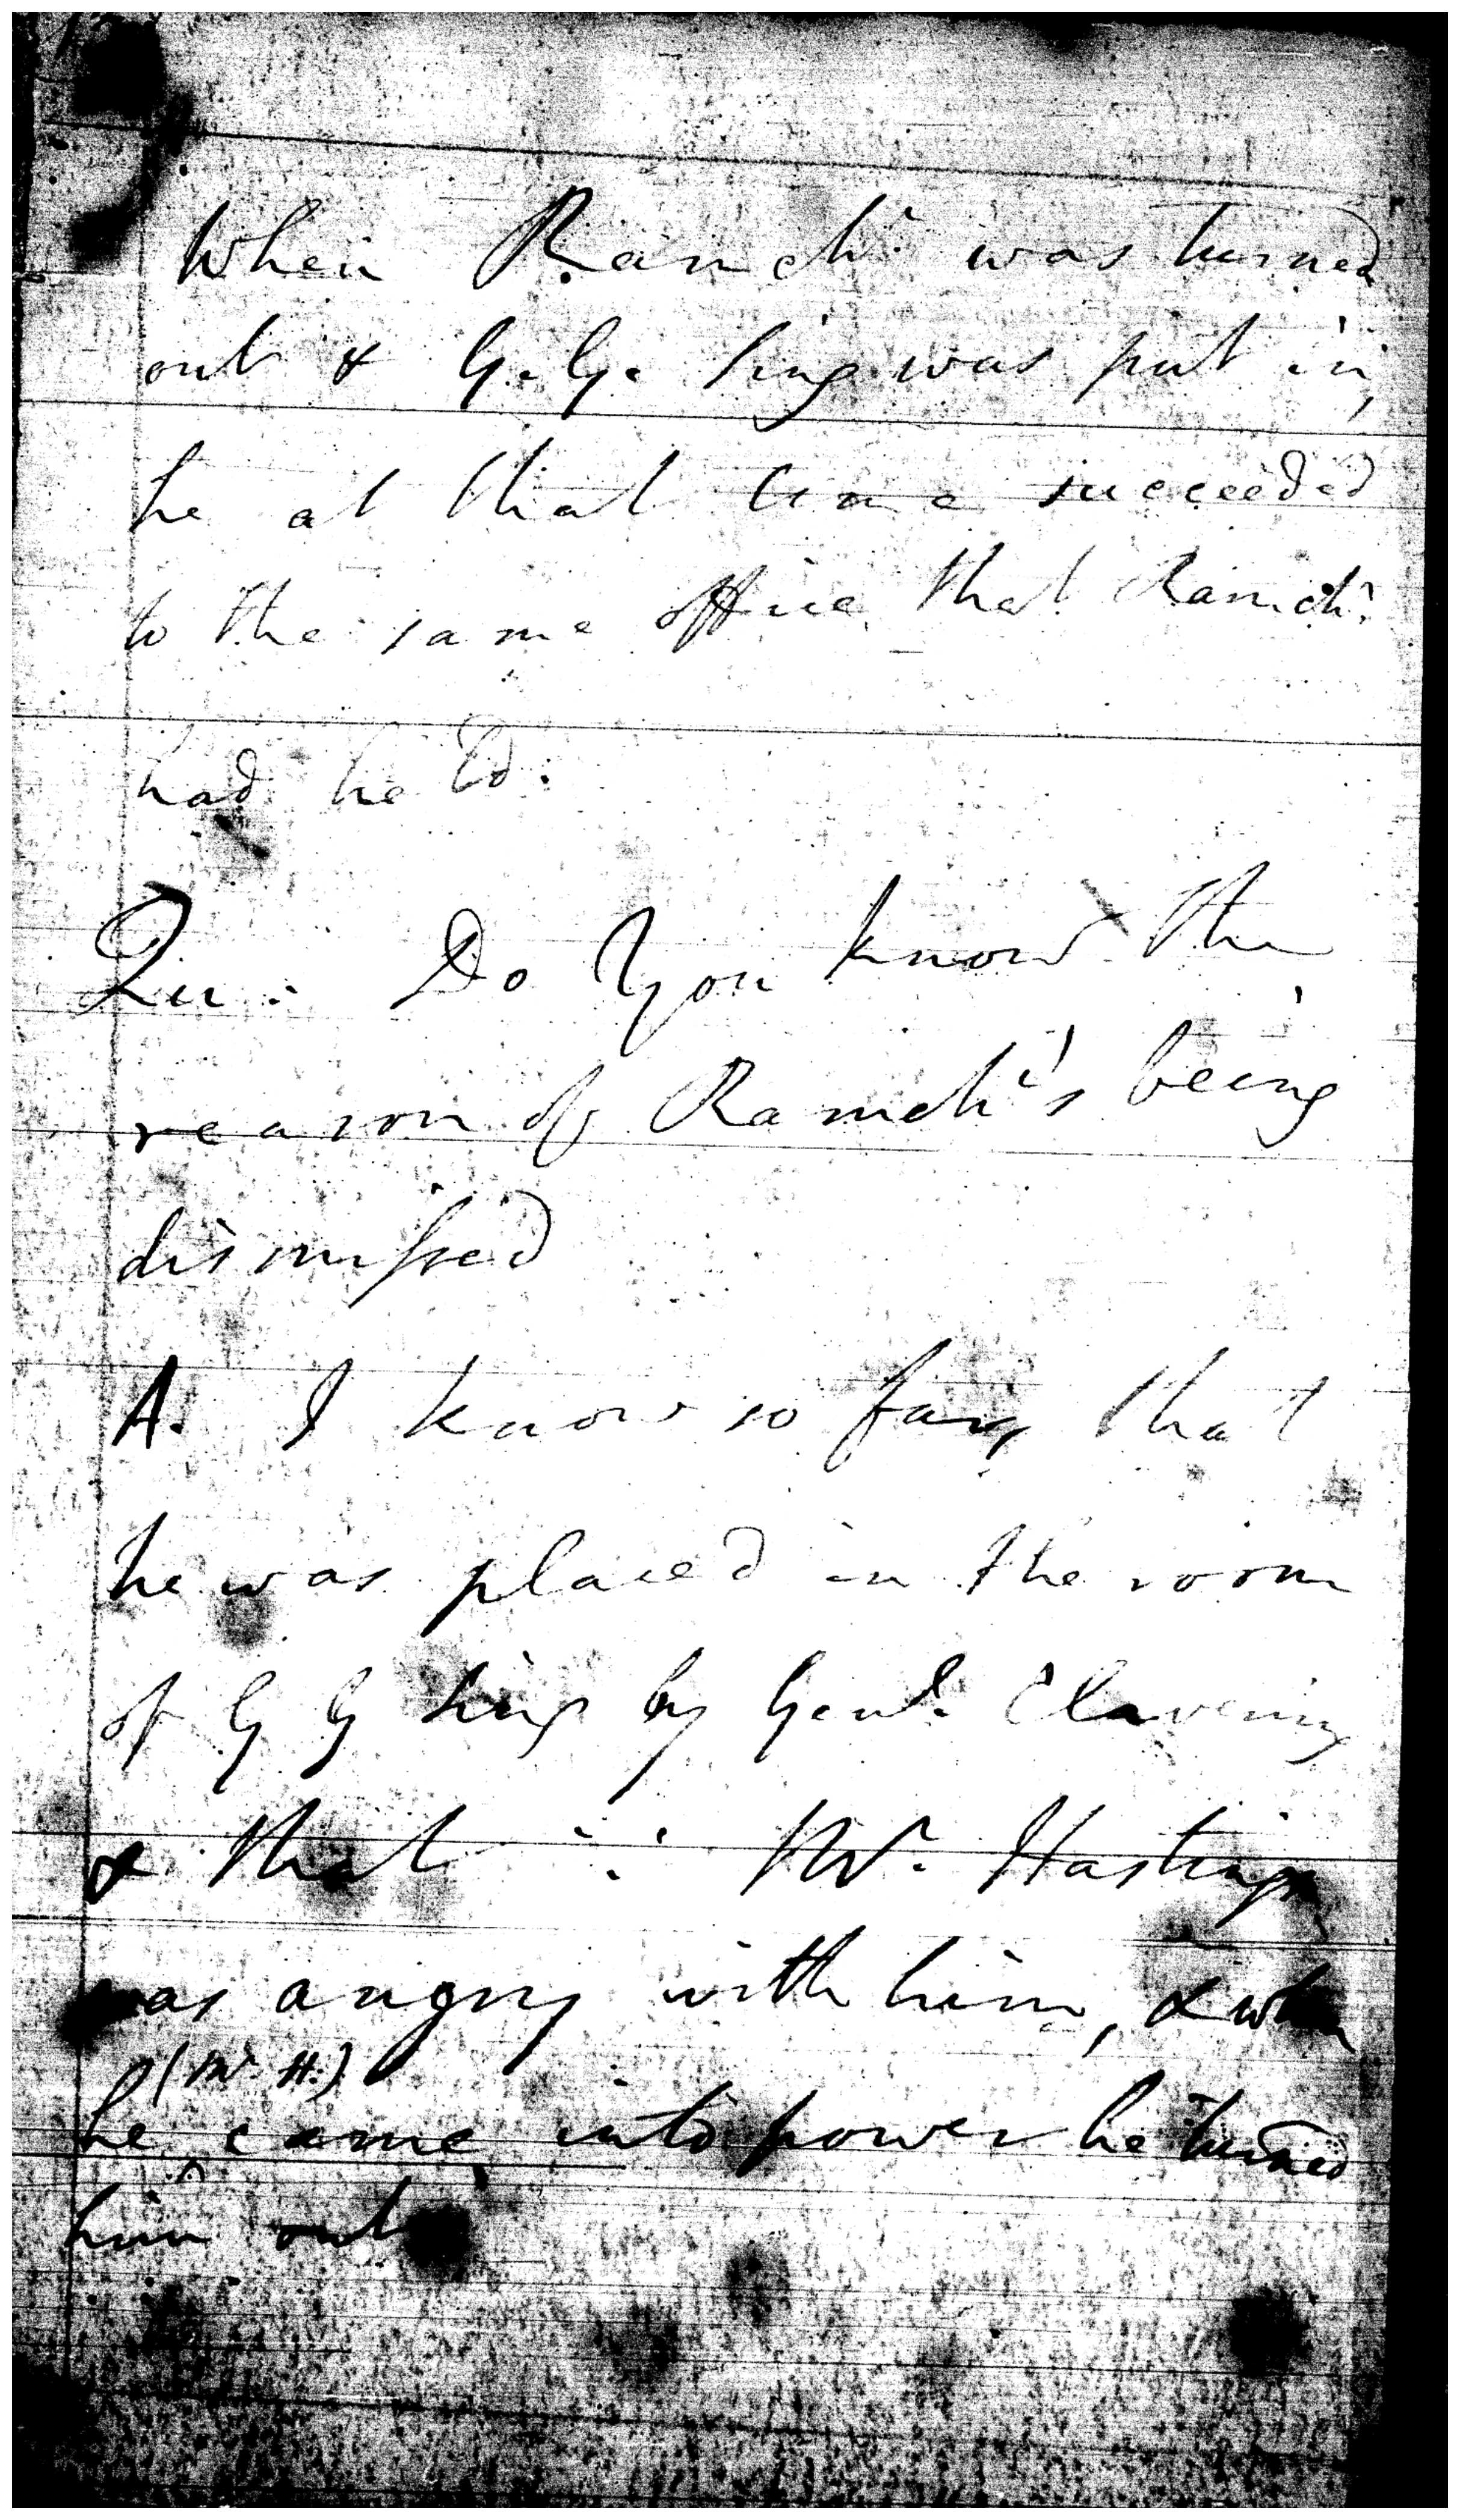 When Ramch: was turned
out & G. G. Sing was put in,
he at that time succeeded
to the same office that Ramch:
had held:
Qu: Do You know the
reason of Ramch's being
dismissed
A. I know so far, that
he was placed in the room
of G G Sing by Genl. Clavering
& that ∵ Mr. Hastings
was angry with him, & when
(Mr. H.)
he came into power he turned
him out